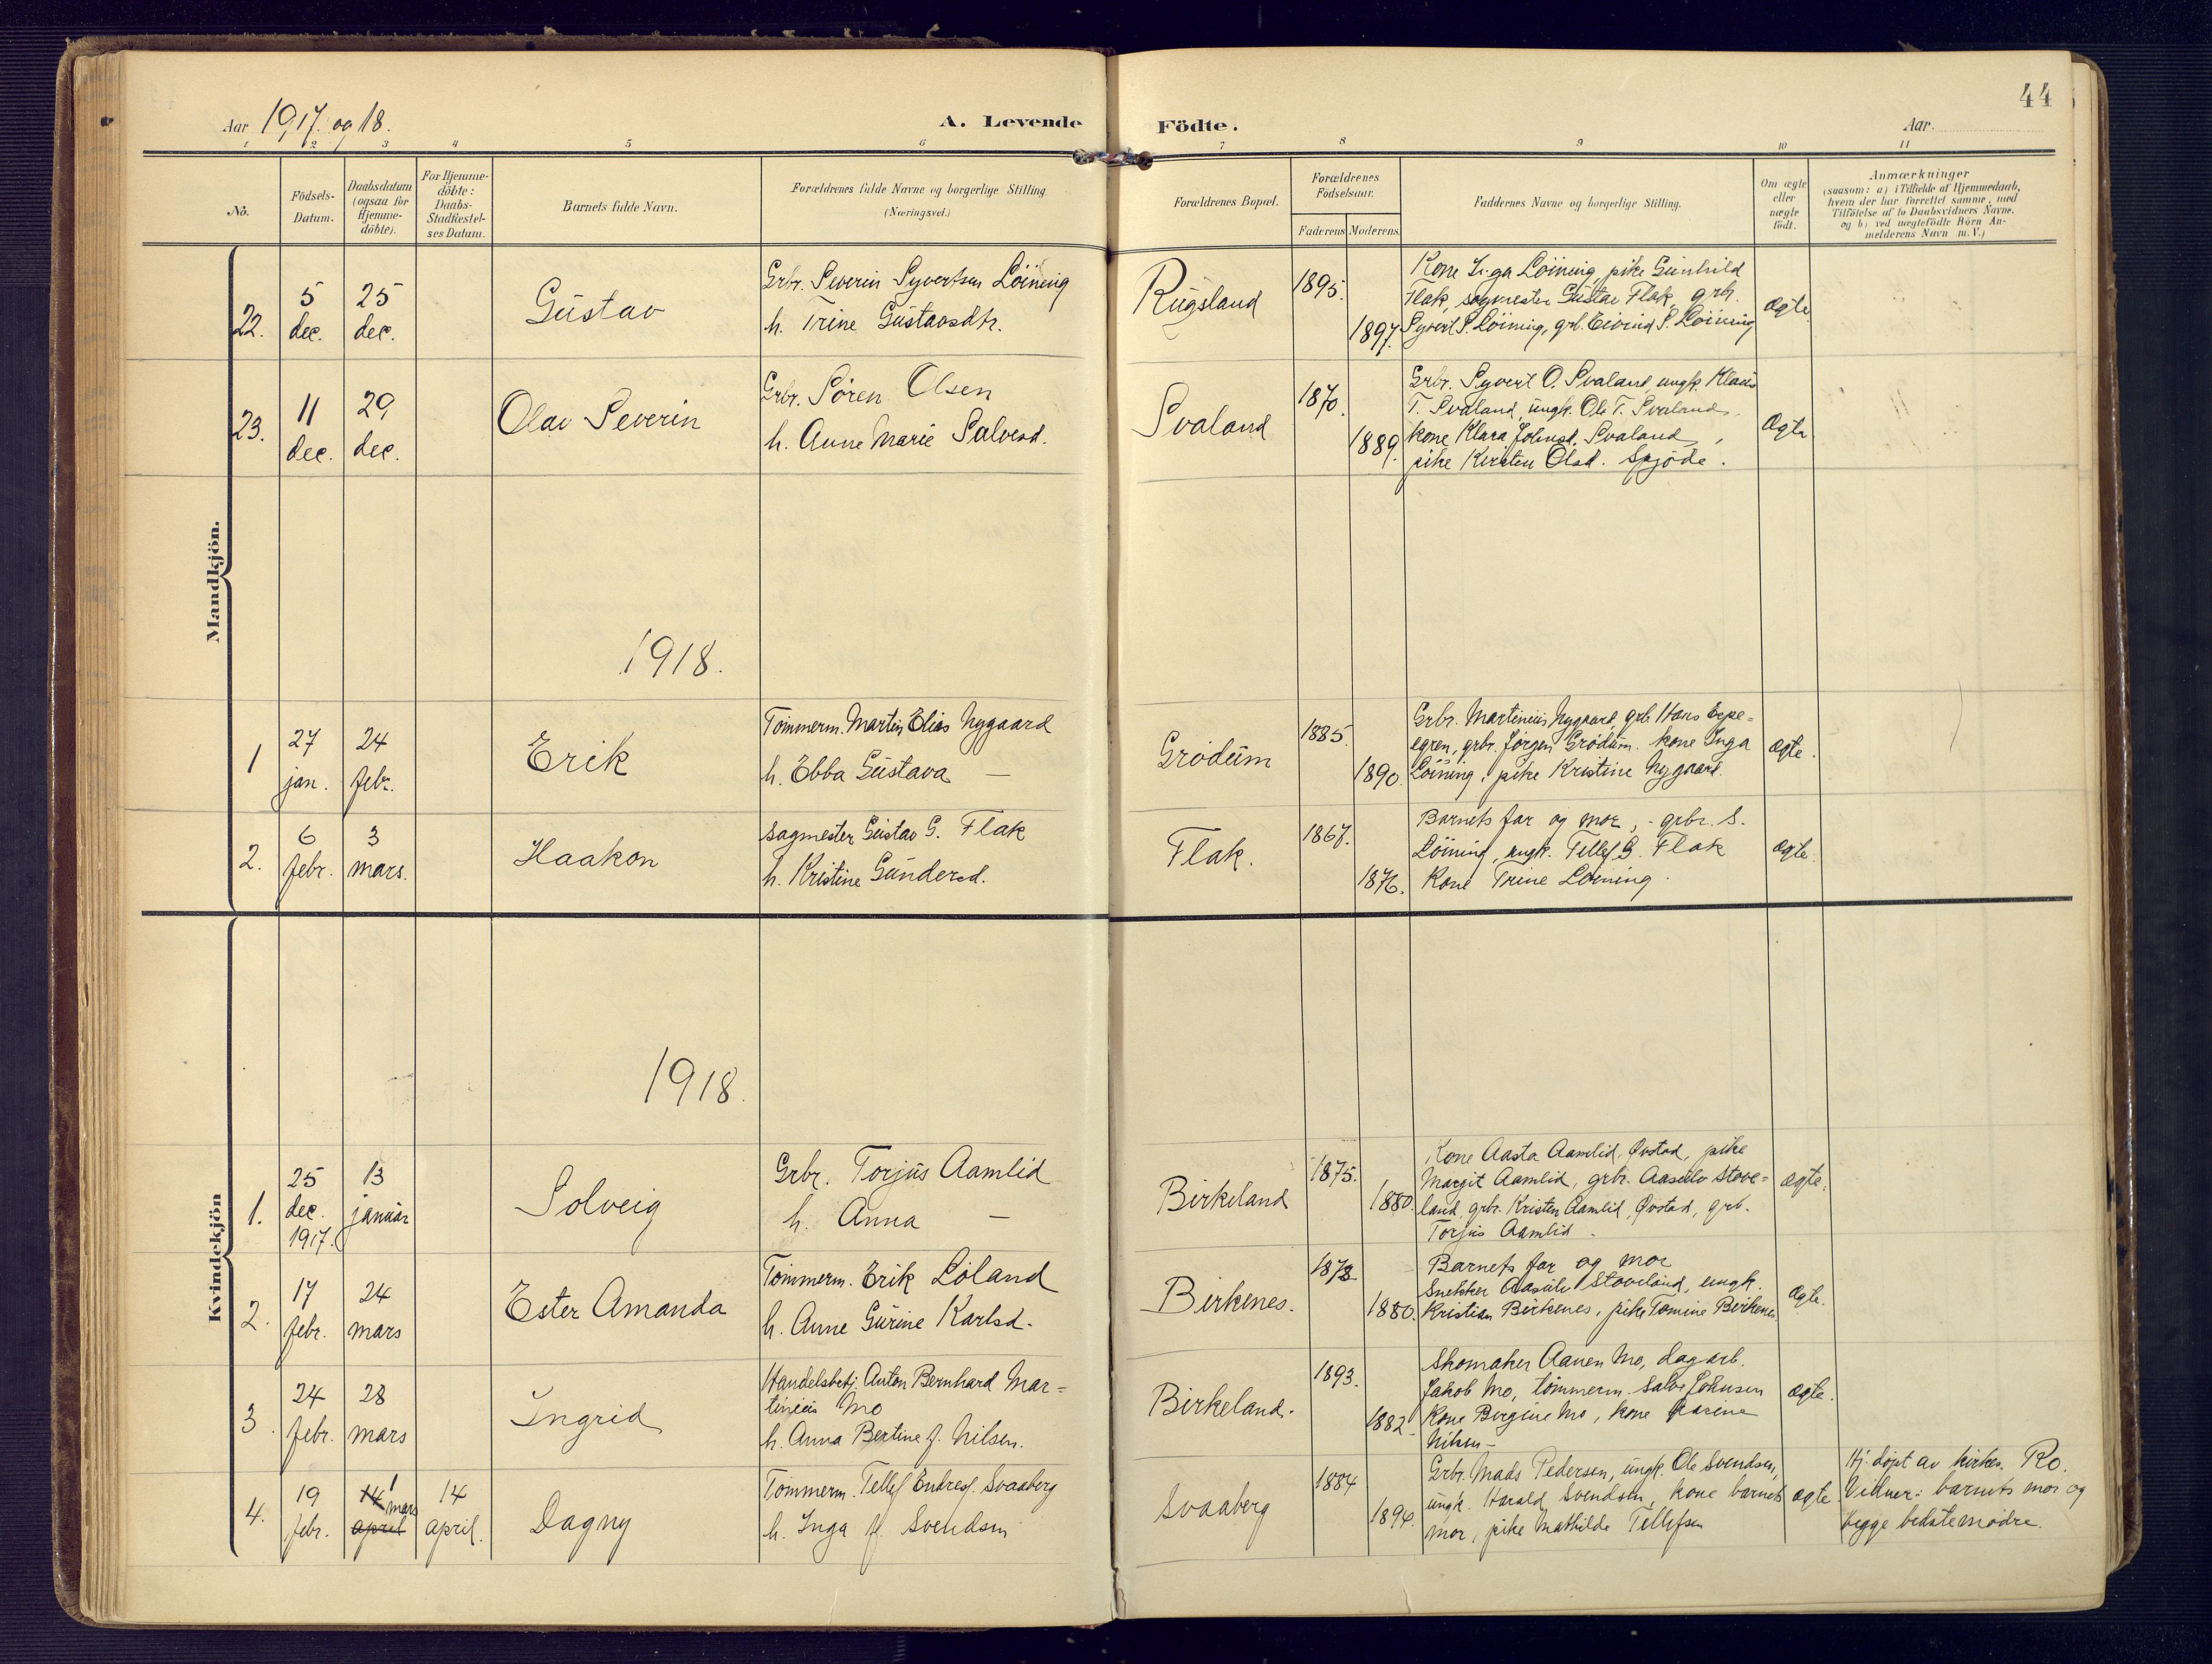 44
Aar 1917 og 18.
A. Levende
Födte.
Aar
1 2 3 4 5 6 7 8 9 10 11
No.
Födsels-
Datum.
Daabsdatum
(ogsaa for
Hjemme-
döbte).
For Hjemme-
döbte:
Daabs-
Stadfæstel-
ses Datum.
Barnets fulde Navn.
Forældrenes fulde Navne og borgerlige Stilling.
(Næringsvei.)
Forældrenes Bopæl.
Forældrenes
Födselsaar.
Faderens Moderens
Faddernes Navne og borgerlige Stilling.
Om ægte
eller
uægte
født.
Anmærkninger
(saasom: a) i Tilfælde af Hjemmedaab,
hvem der har forrettet samme, med
Tilföielse af to Daabsvidners Navne.
og b) ved uægtefödte Börn An-
melderens Navn m. V.)
Mandkjön.
22.
5
dec.
25
dec.
Gustav
Grbr. Severin Syvertsen Löining
h. Trine Gustavsdtr.
Rugsland
1895.
1897.
Kone Inga Löining, pike Gunhild
Flak, sagmester Gustav Flak, grb.
Syvert S. Löining, grb. Eivind S. Löining
ægte
23.
11
dec.
29
dec.
Olav Severin
Grbr. Sören Olsen
h. Anne Marie Salvesd.
Svaland
1870.
1889.
Grbr. Syvert O. Svaland, ungk. Klaus
T. Svaland, ungk. Ole T. Svaland,
kone Klara Johnsd. Svaland,
pike Kirsten Olsd. Spjöde.
Ægte
1918.
1
27
jan.
24
febr.
Erik
Tömmerm. Martin Elias Nygaard
h. Ebba Gustava —
Grödum
1885.
1890.
Grbr. Martinius Nygaard, grb. Hans Eepe-
egren, grbr. Jörgen Grödum. kone Inga
Löining, pike Kristine Nygaard.
ægte.
2.
6
febr.
3
mars.
Haakon
Sagmester Gustav G. Flak
h. Kristine Gundersd.
Flak.
1867.
1876.
Barnets far og mor, - grbr. S.
Löining, ungk. Tellef G. Flak
Kone Trine Löining.
ægte.
Kvindekjön
1918.
1.
25
dec.
1917.
13
januar
Solveig
Grbr. Torjus Aamlid
h. Anna —
Birkeland
1875.
1880.
Kone Aasta Aamlid, Øvstad, pike
Margit Aamlid, grbr. Aasulv Stove-
land, grbr. Kristen Aamlid, Øvstad, grb.
Torjus Aamlid.
ægte.
2.
17
febr.
24
mars
Ester Amanda
Tömmerm. Erik Löland
h. Anne Gurine Karlsd.
Birkenes.
1878
1880.
Barnets far og mor
Snekker Aasulv Stoveland, ungk.
Kristian Birkenes, pike Tomine Birkenes
Ægte.
3.
24
febr.
28
mars
Ingrid
Handelsbetj. Anton Bernhard Mar-
tinius Mo
h. Anna Bertine f. Nilsen.
Birkeland.
1893.
1882
Skomaker Aanen Mo, dagarb.
Jakob Mo, tömmerm. Salve Johnsen
Kone Bergine Mo, kone Karine
Nilsen
ægte.
4.
19
febr.
14 1 mars
april
14
april.
Dagny
Tömmerm. Tellef Endresf. Svaaberg
h. Inga f. Svendsen
Svaaberg
1884
1894.
Grbr. Mads Pedersen, ungk. Ole Svendsen,
ungk. Harald Svendsen, kone barnets
mor, pike Mathilde Tellefsen
ægte
Hj. döpt av kirkes. Ro.
Vidner: barnets mor og
begge bedstemödre.